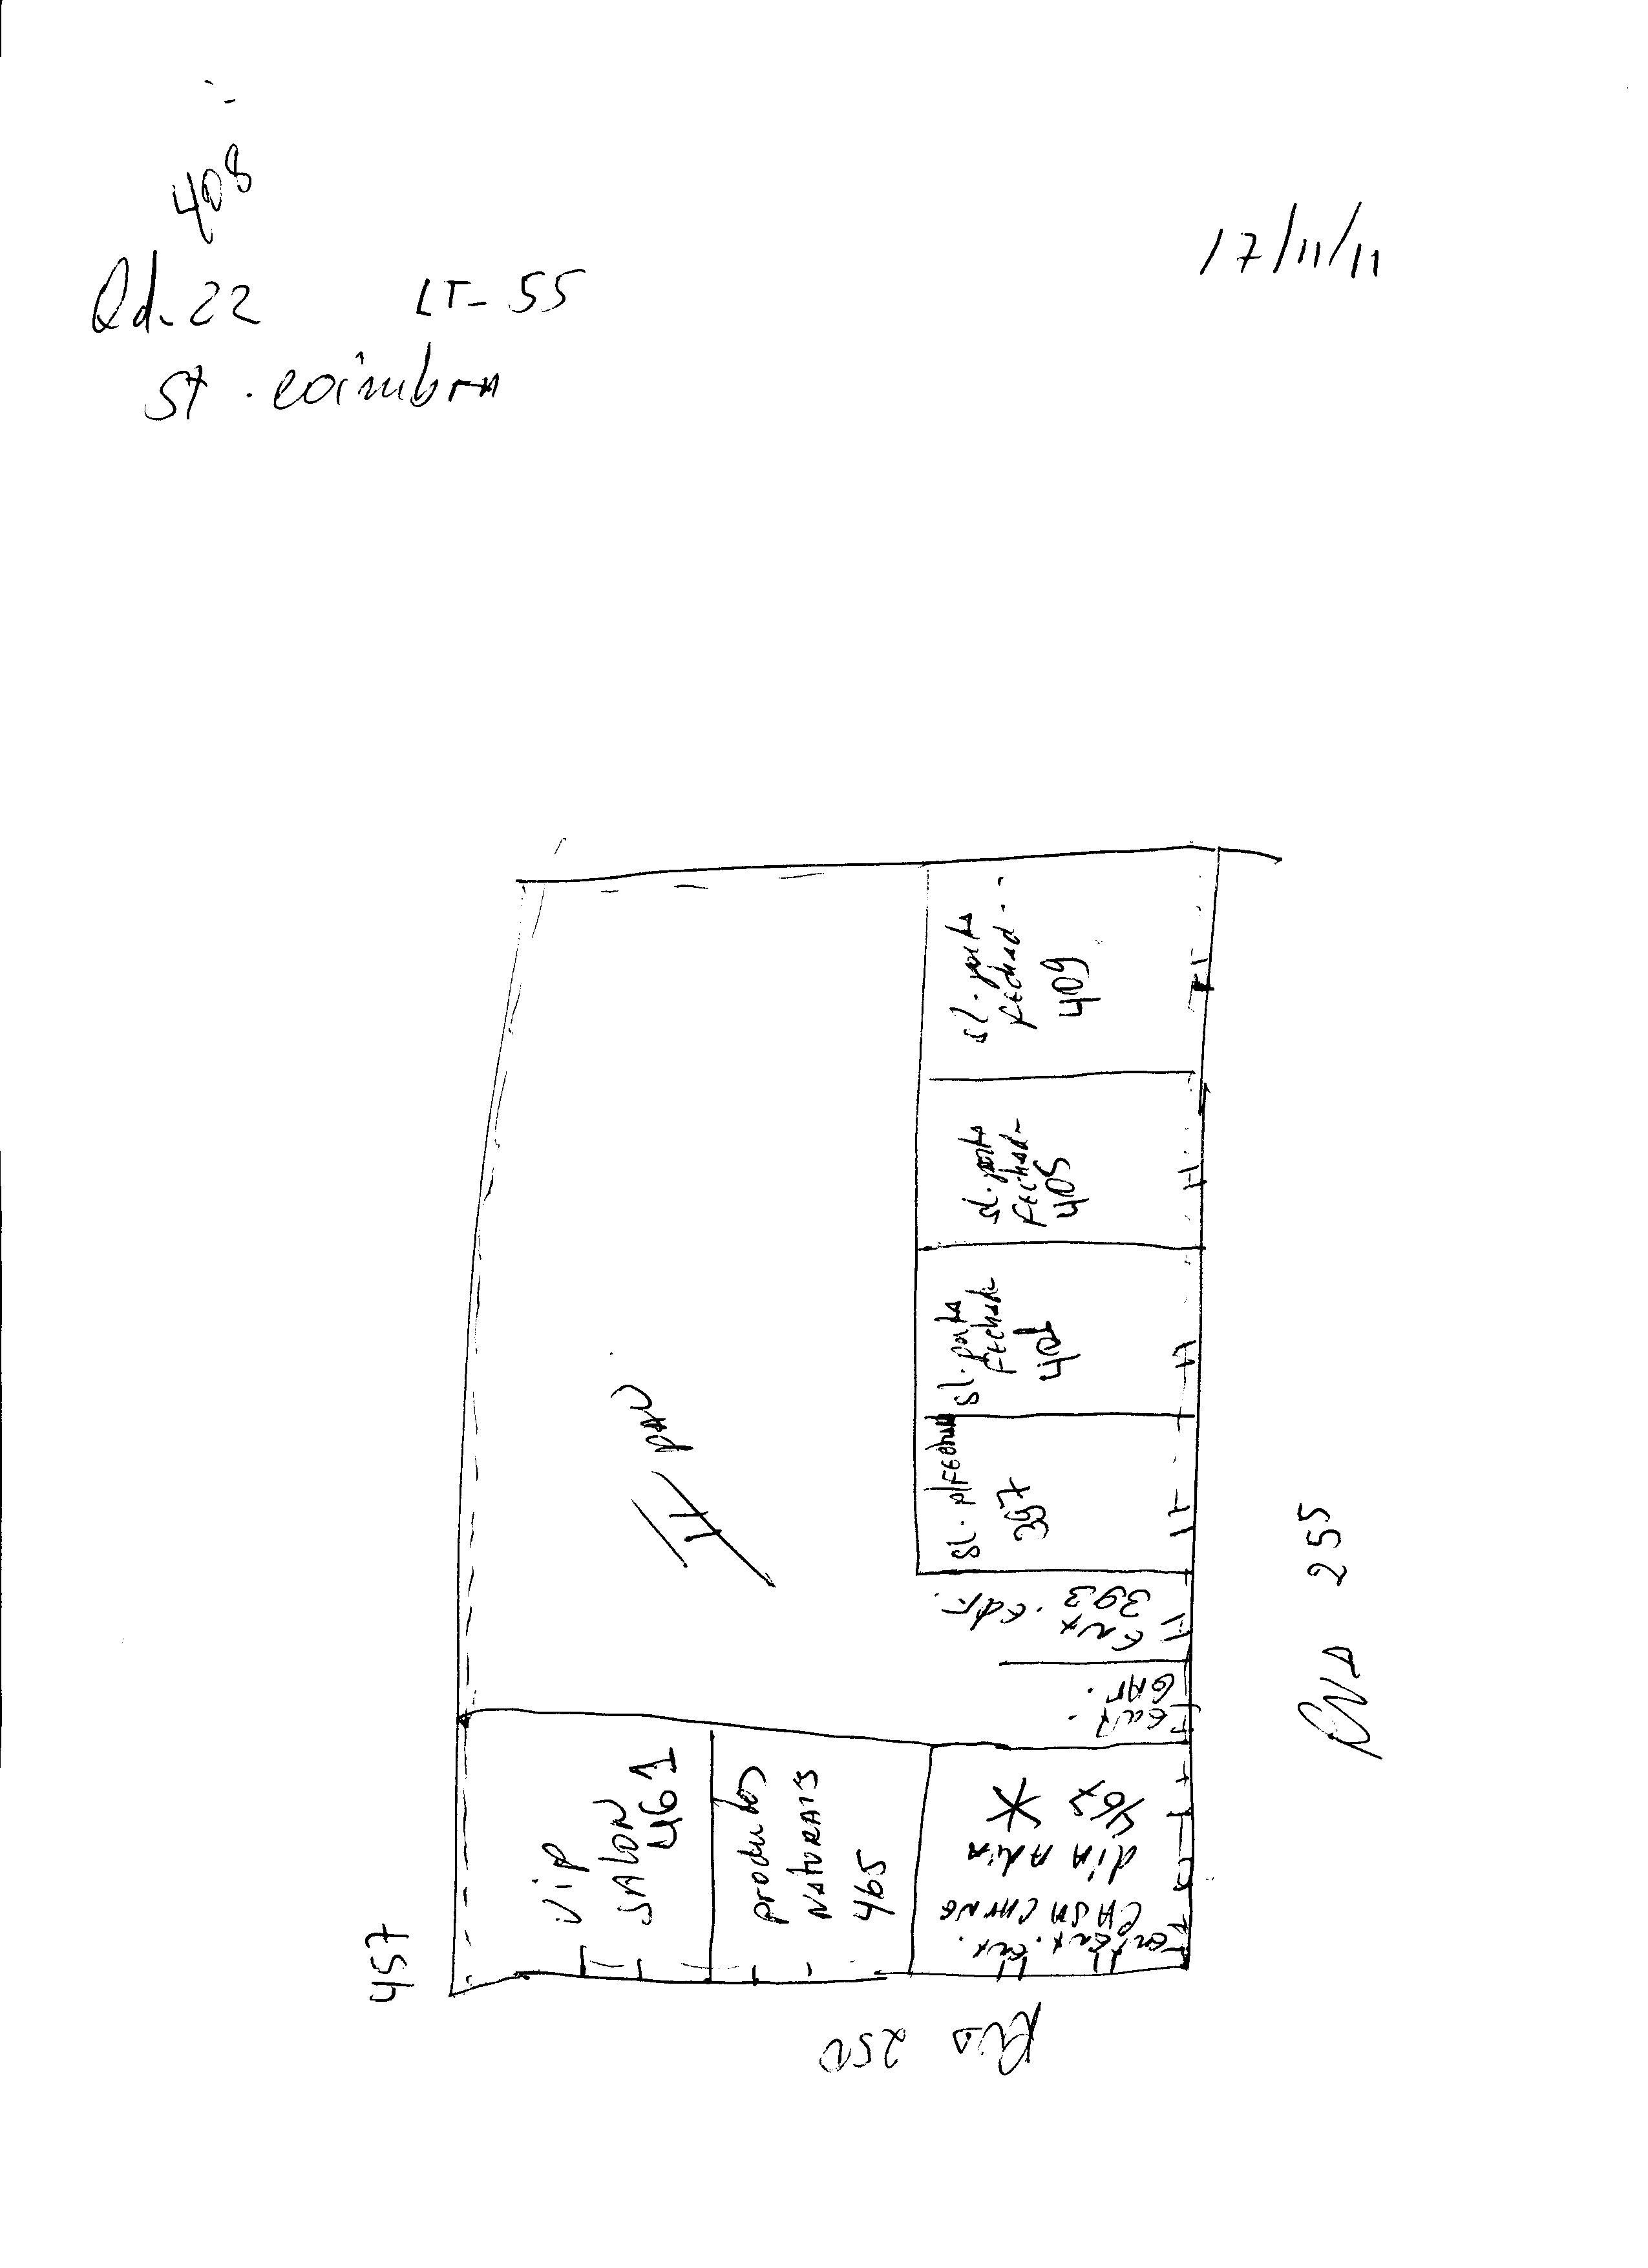 408
17/11/11
Qd. 22 LT- 55
St. Coimbra
sl. porta
Fechad...
409
sl. porta
Fechad-
405
sl. porta
Fechad-
401
sl. p/Fechad
397
II PAV
Ent. Edf.
393
Ent.
GAr.
ViP
SALON
461
produtos
NATURAIS
465
CASA CARNE
diA A diA
467
Ent.
457
RUA 255
RUA 250